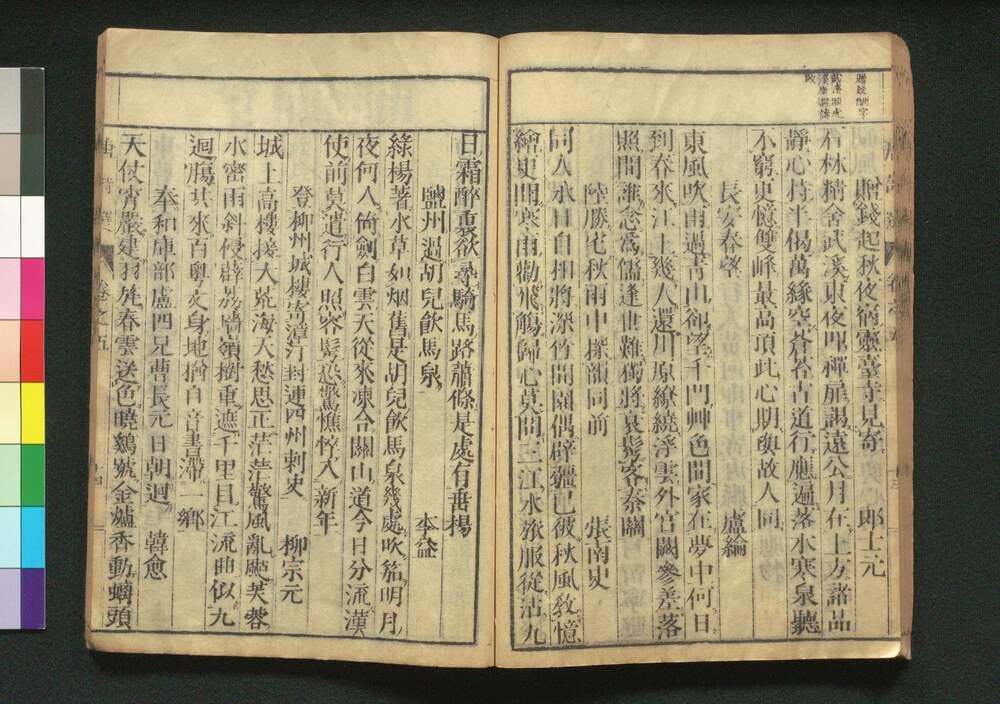 贈錢起秋夜宿靈臺寺見寄 郎士元
石林精舍武溪東夜叩禪扉謁遠公月在上方諸品
靜心持半偈萬緣空蒼苔古道行應遍落木寒泉聽
不窮更憶雙峰最高頂此心期與故人同
長安春望 盧綸
東風吹雨過青山卻望千門艸色閒家在夢中何日
到春來江上幾人還川原繚繞浮雲外宮闕參差落
照間誰念爲儒逢世難獨將衰鬢客秦關
陸勝宅秋雨中探韻同前 張南史
同人永日自相將深竹閒園偶辟疆已被秋風教憶
鱠更聞寒雨勸飛觴歸心莫問三江水旅服從沾九
日霜醉裏欲尋騎馬路蕭條是處有垂楊
鹽州過胡兒飲馬泉 李益
綠楊著水草如烟舊是胡兒飲馬泉幾處吹笳明月
夜何人倚劍白雲天從來凍合關山道今日分流漢
使前莫遣行人照容鬢恐驚憔悴入新年
登柳州城樓寄漳汀封連四州刺史 柳宗元
城上高樓接大荒海天愁思正茫茫驚風亂颭芙蓉
水密雨斜侵薜荔牆嶺樹重遮千里目江流曲似九
迴腸共來百粵文身地猶自音書滯一鄉
奉和庫部盧四兄曹長元日朝迴 韓愈
天仗宵嚴建羽旄春雲送色曉鷄號金爐香動螭頭
唐詩選 卷之五